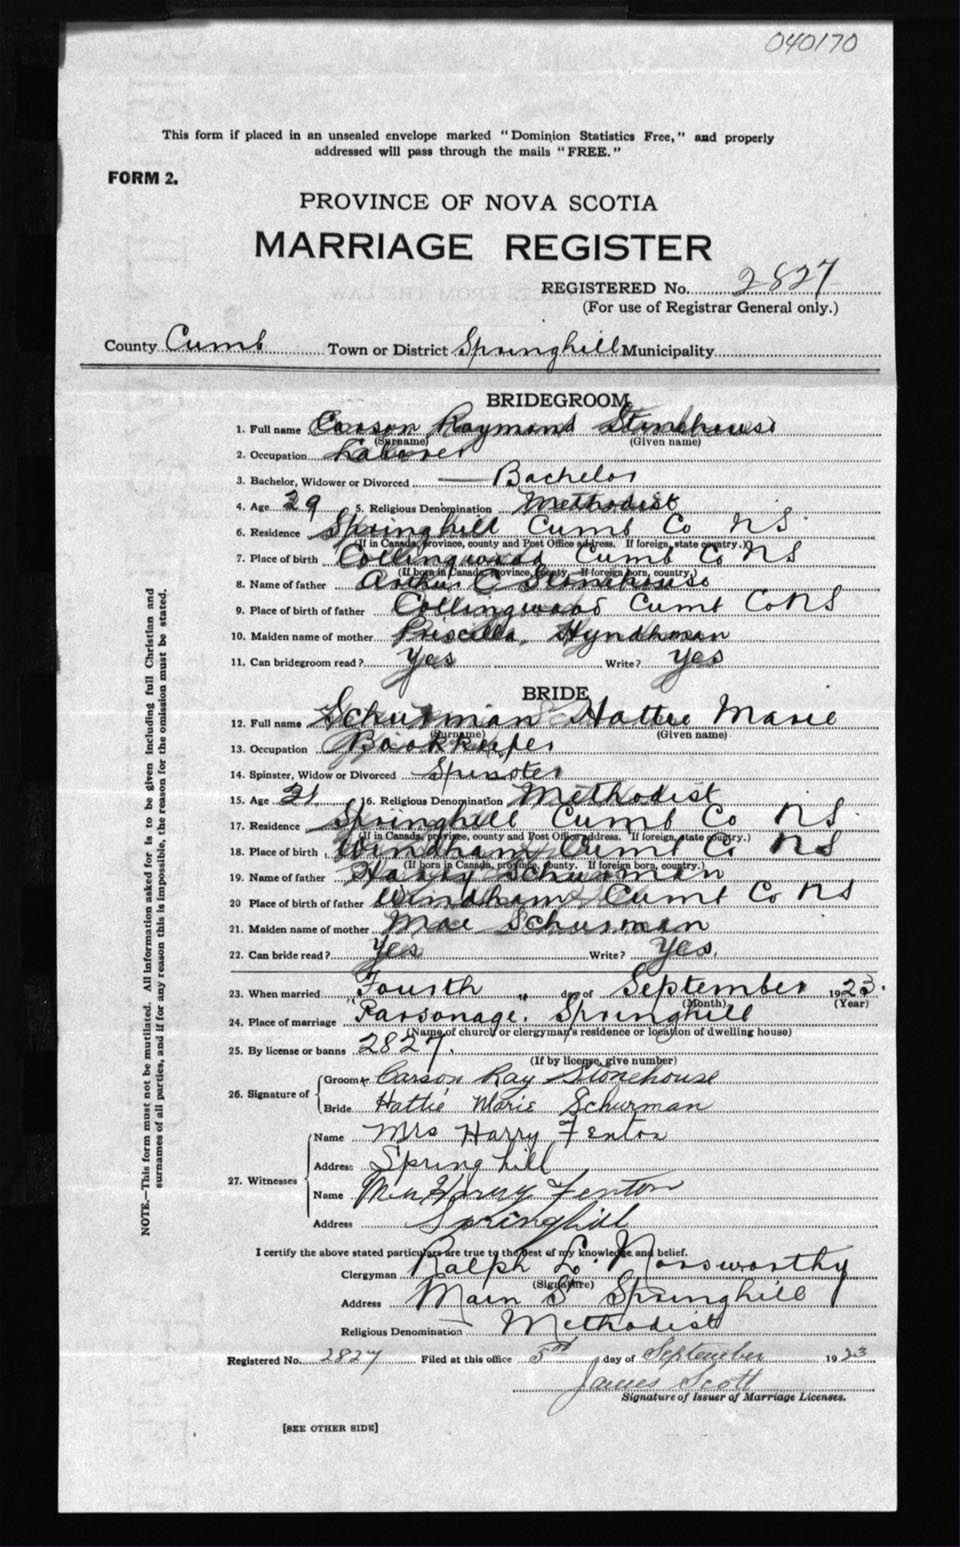 040170
This form if placed in an unsealed envelope marked "Dominion Statistics Free," and properly
addressed will pass through the mails "FREE."
FORM 2.
PROVINCE OF NOVA SCOTIA
MARRIAGE REGISTER
REGISTERED No. 2827
(For use of Registrar General only.)
County Cumb Town or District Springhill Municipality
BRIDEGROOM
1. Full name Carson Raymond Stonehouse
(Surname) (Given name)
2. Occupation Laborer
3. Bachelor, Widower or Divorced Bachelor
4. Age 29 5. Religious Denomination Methodist
6. Residence Springhill Cumb Co NS
(If in Canada, province, county and Post Office address. If foreign, state country.)
7. Place of birth Collingwood Cumb Co NS
(If born in Canada, province, county. If foreign born, country.)
8. Name of father Arthur C Stonehouse
9. Place of birth of father Collingwood Cumb Co NS
10. Maiden name of mother Priscilla Hyndhman
11. Can bridegroom read? Yes Write? Yes
BRIDE
12. Full name Schurman Hattie Marie
(Surname) (Given name)
13. Occupation Bookkeeper
14. Spinster, Widow or Divorced Spinster
15. Age 21 16. Religious Denomination Methodist
17. Residence Springhill Cumb Co NS
(If in Canada, province, county and Post Office address. If foreign, state country.)
18. Place of birth Windham Cumb Co NS
(If born in Canada, province, county. If foreign born, country.)
19. Name of father Harry Schurman
20 Place of birth of father Windham Cumb Co NS
21. Maiden name of mother Mae Schurman
22. Can bride read? Yes Write? Yes.
23. When married Fourth " day of September 1923.
(Month) (Year)
24. Place of marriage "Parsonage. Springhill
(Name of church or clergyman's residence or location of dwelling house)
25. By license or banns 2827.
(If by license, give number)
26. Signature of Groom Carson Ray Stonehouse
Bride Hattie Marie Schurman
27. Witnesses Name Mrs Harry Fenton
Address Spring hill
Name Harry Fenton
Address Springhill
I certify the above stated particulars are true to the best of my knowledge and belief.
Clergyman Ralph E. Norsworthy
(Signature)
Address Main St Springhill
Religious Denomination Methodist
Registered No. 2827 Filed at this office 5 day of September 1923
James Scott
Signature of Issuer of Marriage Licenses.
[SEE OTHER SIDE]
NOTE.—This form must not be mutilated. All information asked for is to be given including full Christian and
surnames of all parties, and if for any reason this is impossible, the reason for the omission must be stated.